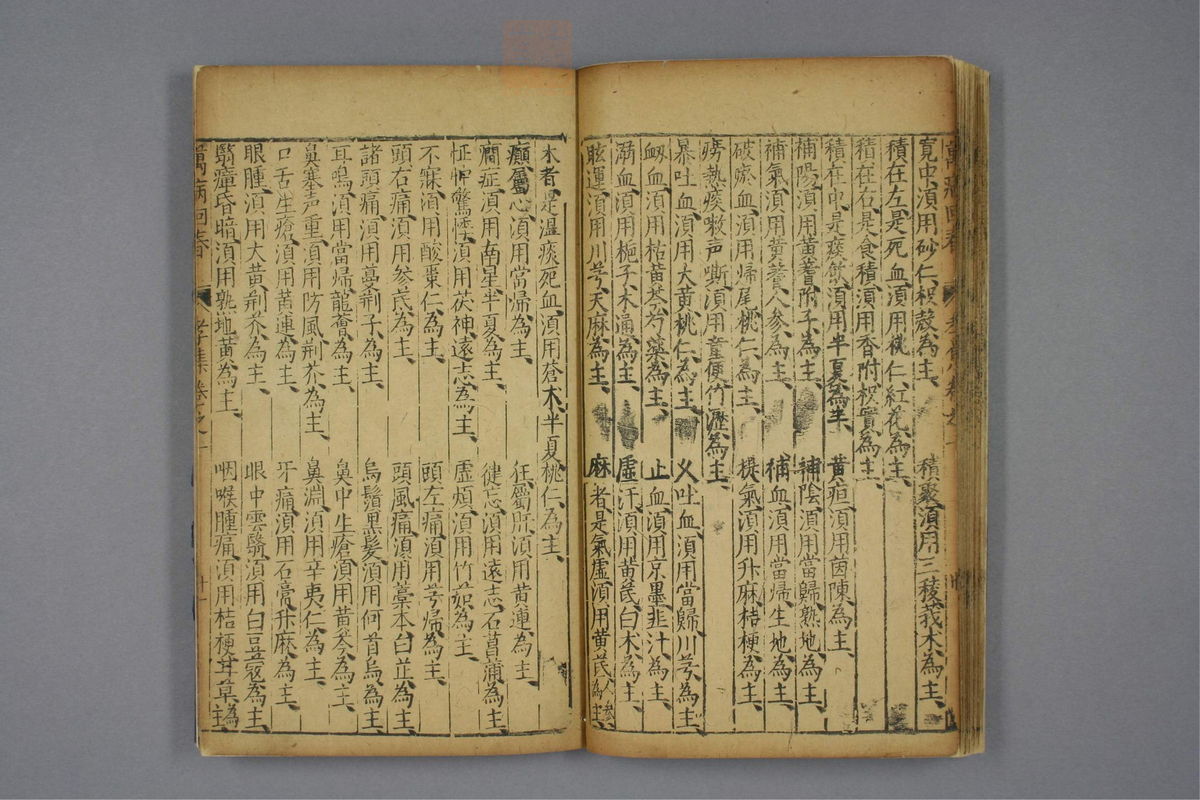 寬中須用砂仁枳殼為主、積聚須用三稜莪朮為主、
積在左是死血須用桃仁紅花為主、
積在右是食積須用香附枳實為主、
積在中是痰飲須用半夏為主、黃疸須用茵陳為主、
補陽須用黃蓍附子為主、補陰須用當歸熟地為主、
補氣須用黃蓍人參為主、補血須用當歸生地為主、
破瘀血須用歸尾桃仁為主、提氣須用升麻桔梗為主、
癆熱痰嗽声嘶須用童便竹瀝為主、
暴吐血須用大黃桃仁為主、乂吐血須用當歸川芎為主、
衂血須用枯黃芩芍藥為主、止血須用京墨韭汁為主、
溺血須用梔子木通為主、虛汗須用黃芪白朮為主、
眩運須用川芎天麻為主、麻者是氣虛須用黃芪人參為主、
木者是濕痰死血須用蒼朮半夏桃仁為主、
癲屬心須用當歸為主、狂屬肝須用黃連為主、
癇症須用南星半夏為主、健忘須用遠志石菖蒲為主、
怔忡驚悸須用茯神遠志為主、虛煩須用竹茹為主、
不寐須用酸棗仁為主、頭左痛須用芎歸為主、
頭右痛須用參芪為主、頭風痛須用藁本白芷為主、
諸頭痛須用蔓荊子為主、烏鬚黑髮須用何首烏為主、
耳鳴須用當歸龍薈為主、鼻中生瘡須用黃芩為主、
鼻塞声重須用防風荊芥為主、鼻淵須用辛夷仁為主、
口舌生瘡須用黃連為主、牙痛須用石膏升麻為主、
眼腫須用大黃荊芥為主、眼中雲翳須用白豆蔻為主、
翳瘴昏暗須用熟地黃為主、咽喉腫痛須用桔梗甘草為主、
萬病回春
卷之一
十一